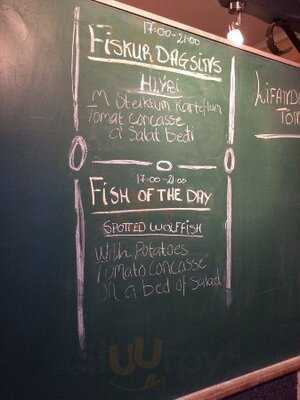 17:00-21:00
FISKUR DAGSINS
HLÝRI
M STEIKTUM KARTÖFLUM
TOMAT CONCASSE
á SALAT BEÐI
17:00-21:00
FISH OF THE DAY
SPOTTED WOLFFISH
WITH POTATOES
TOMATO CONCASSE
ON A BED OF SALAD
LIFANDI